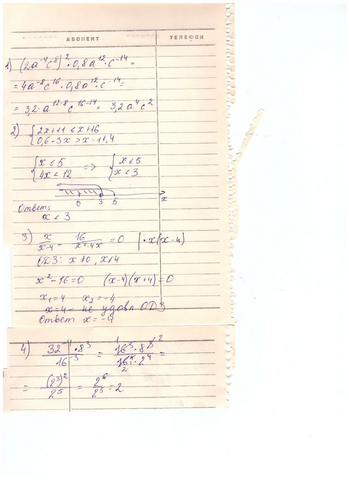 АБОНЕНТ ТЕЛЕФОН
1) (2a⁻⁴c⁸)²·0,8a¹²·c⁻¹⁴ =
= 4a⁻⁸c¹⁶·0,8a¹²·c⁻¹⁴ =
= 3,2·a¹²⁻⁸c¹⁶⁻¹⁴ = 3,2a⁴c²
2) {2x+11<x+16
0,6-3x>x-11,4
{x<5 => {x<5
4x<12 x<3
0 3 5 x
Ответ:
x<3
3) x/(x-4) - 16/(x²-4x) = 0 | ·x(x-4)
ОДЗ: x≠0, x≠4
x²-16=0 (x-4)(x+4)=0
x₁=4 x₂=-4
x=4 - не удовл ОДЗ
Ответ x=-4
= (2³)²/2⁵ = 2⁶/2⁵ = 2